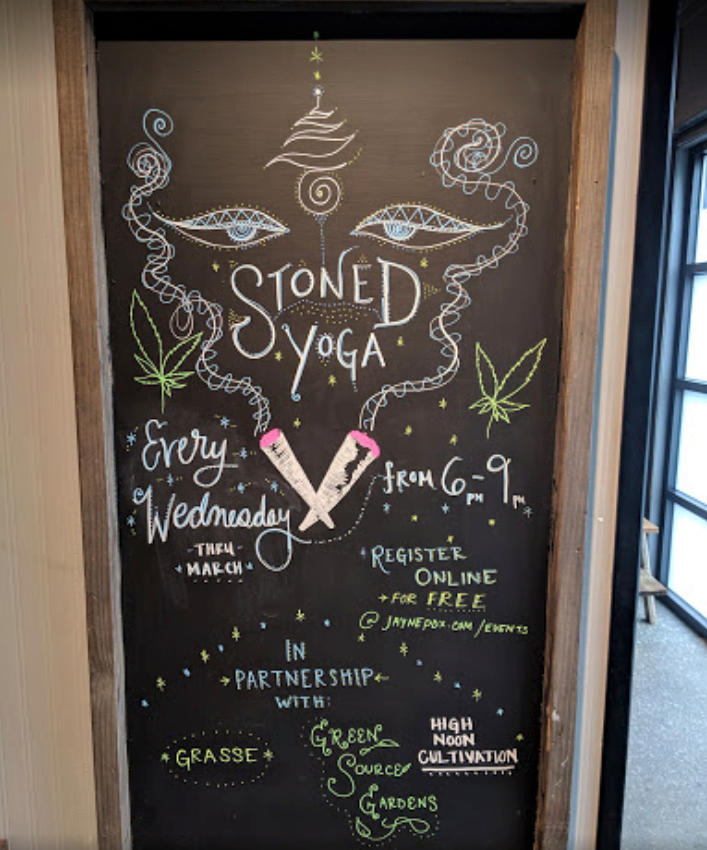 STONED
YOGA
Every
Wednesday
THRU
MARCH
from 6PM-9PM
REGISTER
ONLINE
FOR FREE
@ JAYNEPDX.COM/EVENTS
IN
PARTNERSHIP
WITH:
GRASSE
GREEN
SOURCE
GARDENS
HIGH
NOON
CULTIVATION